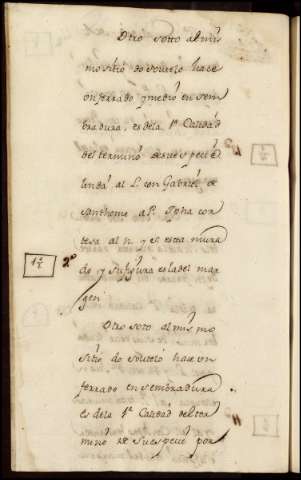 Otro Soto al mis
mo sitio do Soutelo hace
un ferrado y medio en sem
bradura, es de la 1ª Calidad
del termino de su especie
linda al L. con Gabriel de
Santhome a P. Jpha cor
tesa al N. y es esta mura
do y su figura es la del mar
gen
1 1/2
2º
Otro soto al mis mo
sitio do Soutelo hace un
ferrado en sembradura
es de la 1ª Calidad del ter
mino de su especie por